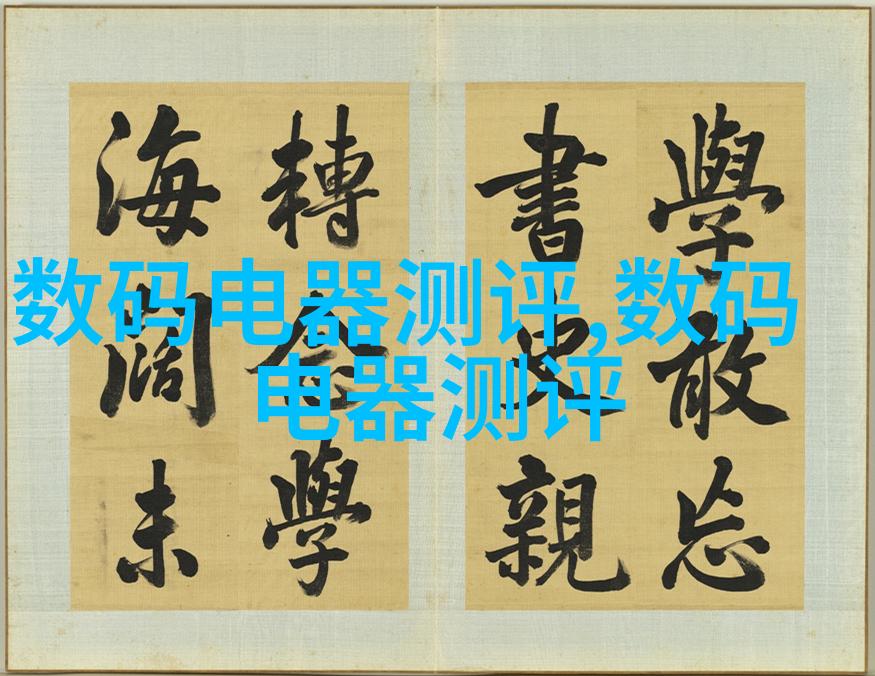 数码电器测评,数码
电器测评
學敢忘
書史親
轉念學
海闊未